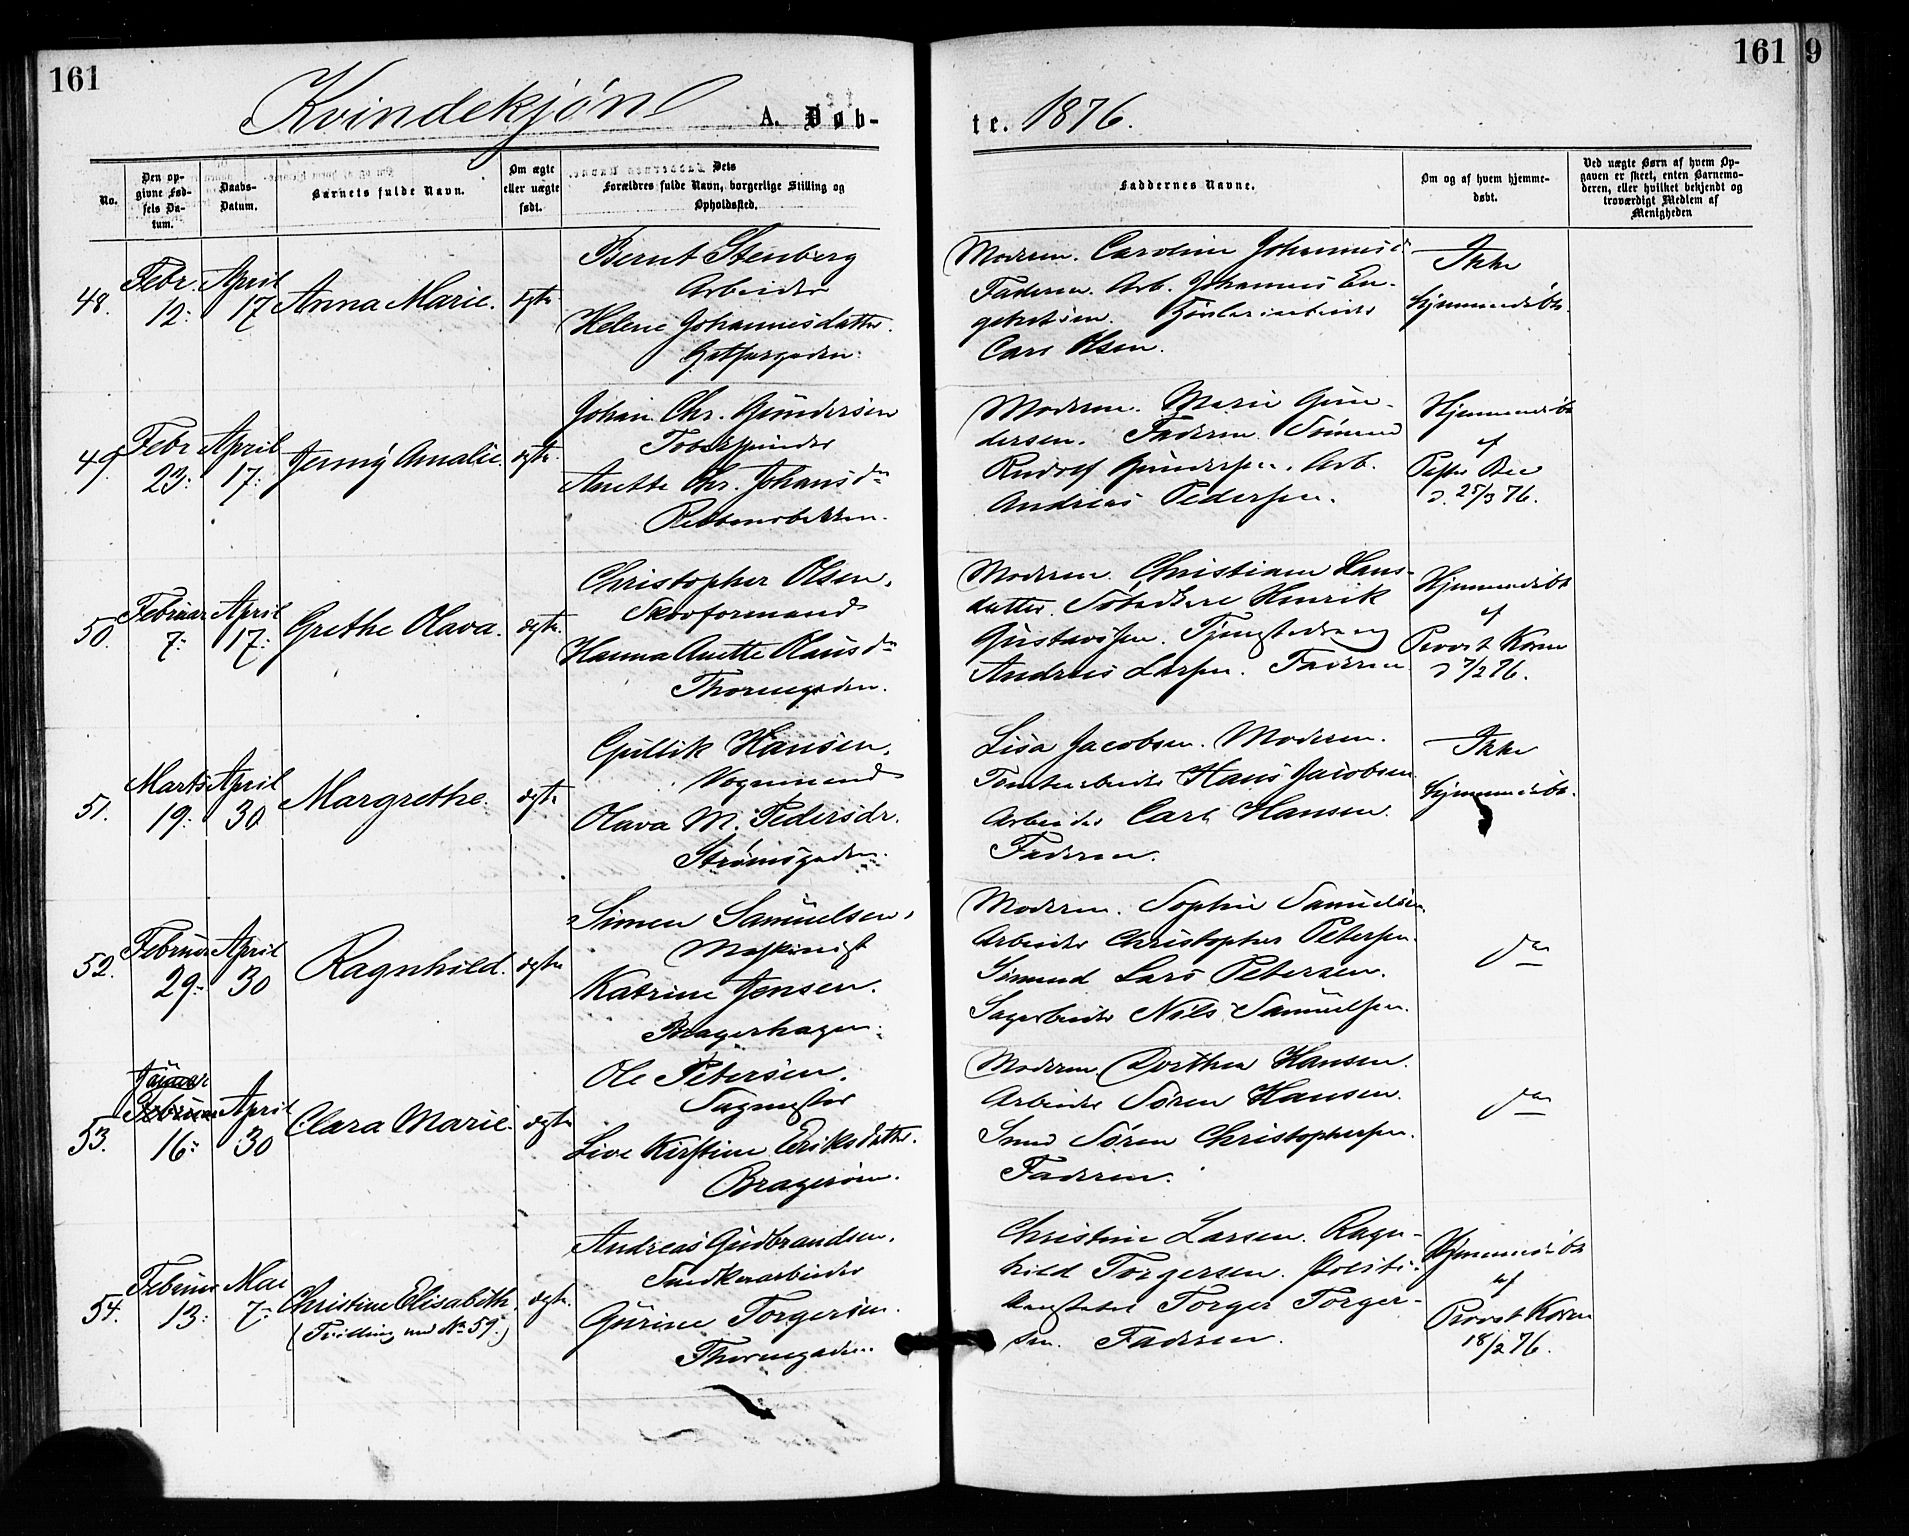 161
161 9
Kvindekjøn A. Døb-
te. 1876.
No.
Den op-
givne Fød-
sels Da-
tum.
Daabs-
Datum.
Barnets fulde Navn.
Om ægte
eller uægte
født.
Dets
Forældres fulde Navn, borgerlige Stilling og
Opholdssted.
Faddernes Navne.
Om og af hvem hjemme-
døbt.
Ved uægte Børn af hvem Op-
gaven er skeet, enten Barnemo-
deren, eller hvilket bekjendt og
troværdigt Medlem af
Menigheden
48.
Febr.
12.
April
17
Anna Marie.
ægte
Bernt Stenberg
Arbeider
Helene Johannesdatter.
Moderen. Caroline Johannes
Faderen. Arb. Johannes En-
gebretsen.
Carl Olsen.
Ikke
hjemmedøbt.
49.
Febr
23.
April
17.
Jenny Amalie.
ægte.
Johan Chr. Gundersen
Tobspinder
Anette Chr. Johansd
Moderen. Marie Gun-
dersen. Faderen.
Rudolf Gundersen. Arb.
Andreas Pedersen.
Hjemmedøbt
af
d. 25/3 76.
50.
Februar
7.
April
17.
Grethe Olava.
ægte.
Christopher Olsen.
Skovformand
Hanna Anette Olausd
Thornegaden.
Moderen. Christiane Hans-
datter. Henrik
Gustavsen.
Andreas Larsen. Faderen
Hjemmedøbt
af
Provst Koren
d 7/2 76.
51.
Marts
19.
April
30
Margrethe.
ægte
Gullik Hansen.
Vognmand
Olava M. Pedersdr.
Strømsgaden.
Lisa Jacobsen. Moderen.
Tomtearbeider Hans Jacobsen
Arbeider Carl Hansen.
Faderen.
Ikke
hjemmedøbt.
52.
Februar
29.
April
30
Ragnhild.
ægte
Simen Samuelsen.
Maskinist
Katrine Jensen.
Bragerhagen.
Moderen. Sophie Samuelsen
Arbeider Christopher Petersen.
Sømand Lars Petersen.
Sagarbeider Nils Samuelsen.
do
53.
Januar
Februar
16.
April
30
Clara Marie.
ægte
Ole Petersen.
Sagmester
Live Kirstine Eriksdatter.
Bragerøen.
Moderen. Dorthea Hansen.
Arbeider Søren Hansen.
Smed Søren Christophersen.
Faderen.
do
54.
Februar
13.
Mai
7.
Christine Elisabeth.
(Tvilling med No 59.)
ægte.
Andreas Gudbrandsen.
Snedkerarbeider
Gurine Torgersen.
Thornegaden.
Christine Larsen. Ragn-
hild Torgersen. Politi-
konstabel Torger Torger-
sen. Faderen.
Hjemmedøbt
af
Provst Koren
18/2 76.